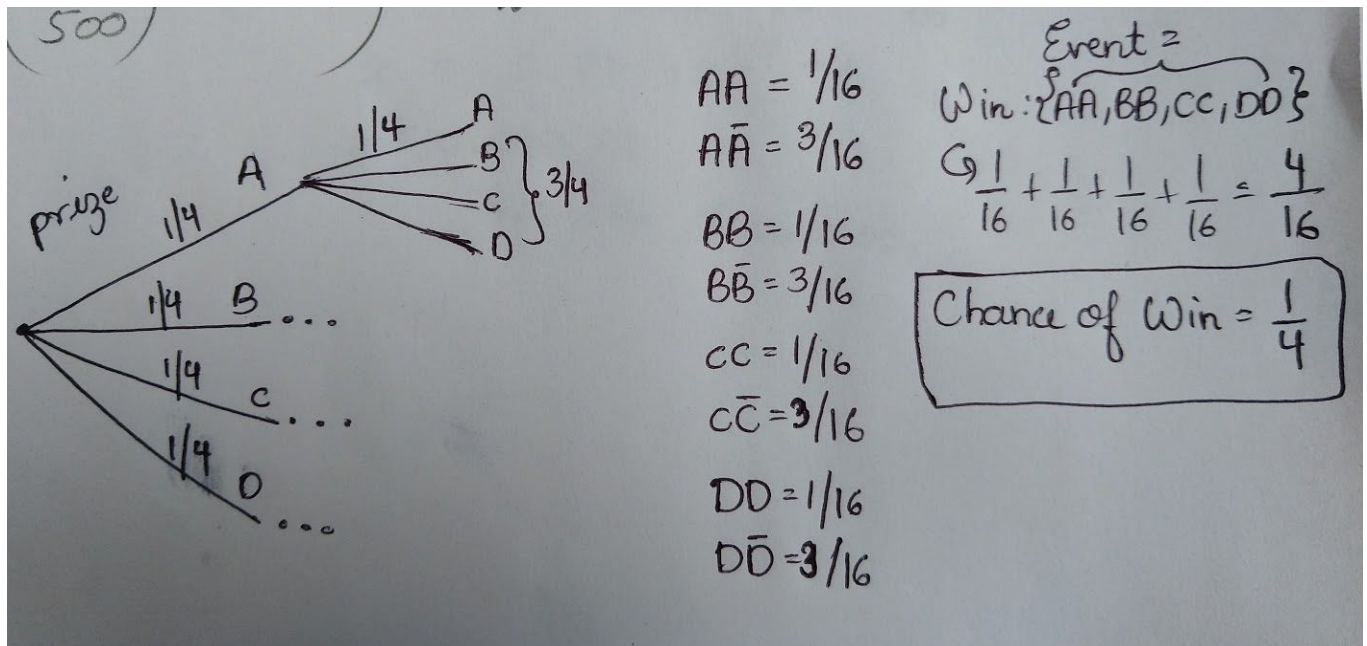 (500)
prize
1/4
A
1/4
A
B
C
D
3/4
1/4 B ...
1/4 C ...
1/4 D ...
AA = 1/16
AĀ = 3/16
BB = 1/16
BB̄ = 3/16
CC = 1/16
CC̄ = 3/16
DD = 1/16
DD̄ = 3/16
Event =
Win: {AA, BB, CC, DD}
1/16 + 1/16 + 1/16 + 1/16 = 4/16
Chance of Win = 1/4